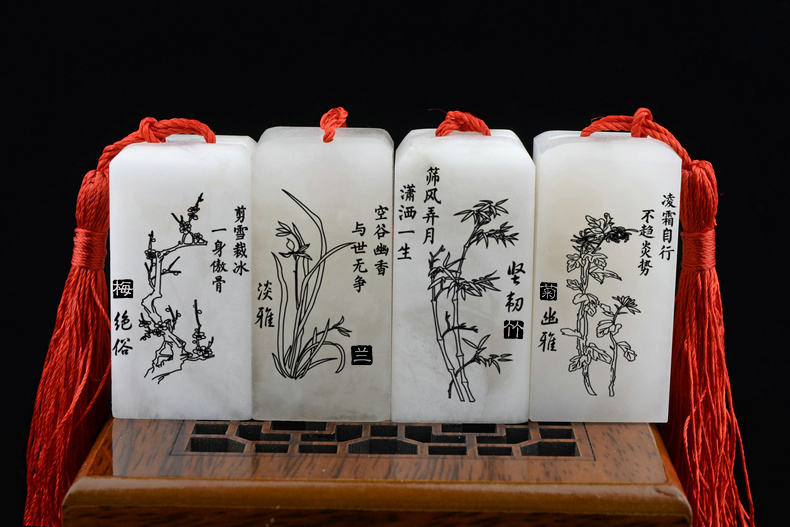 剪雪裁冰
一身傲骨
梅
绝俗
空谷幽香
与世无争
淡雅
兰
筛风弄月
潇洒一生
坚韧
竹
凌霜自行
不趋炎势
菊
幽雅